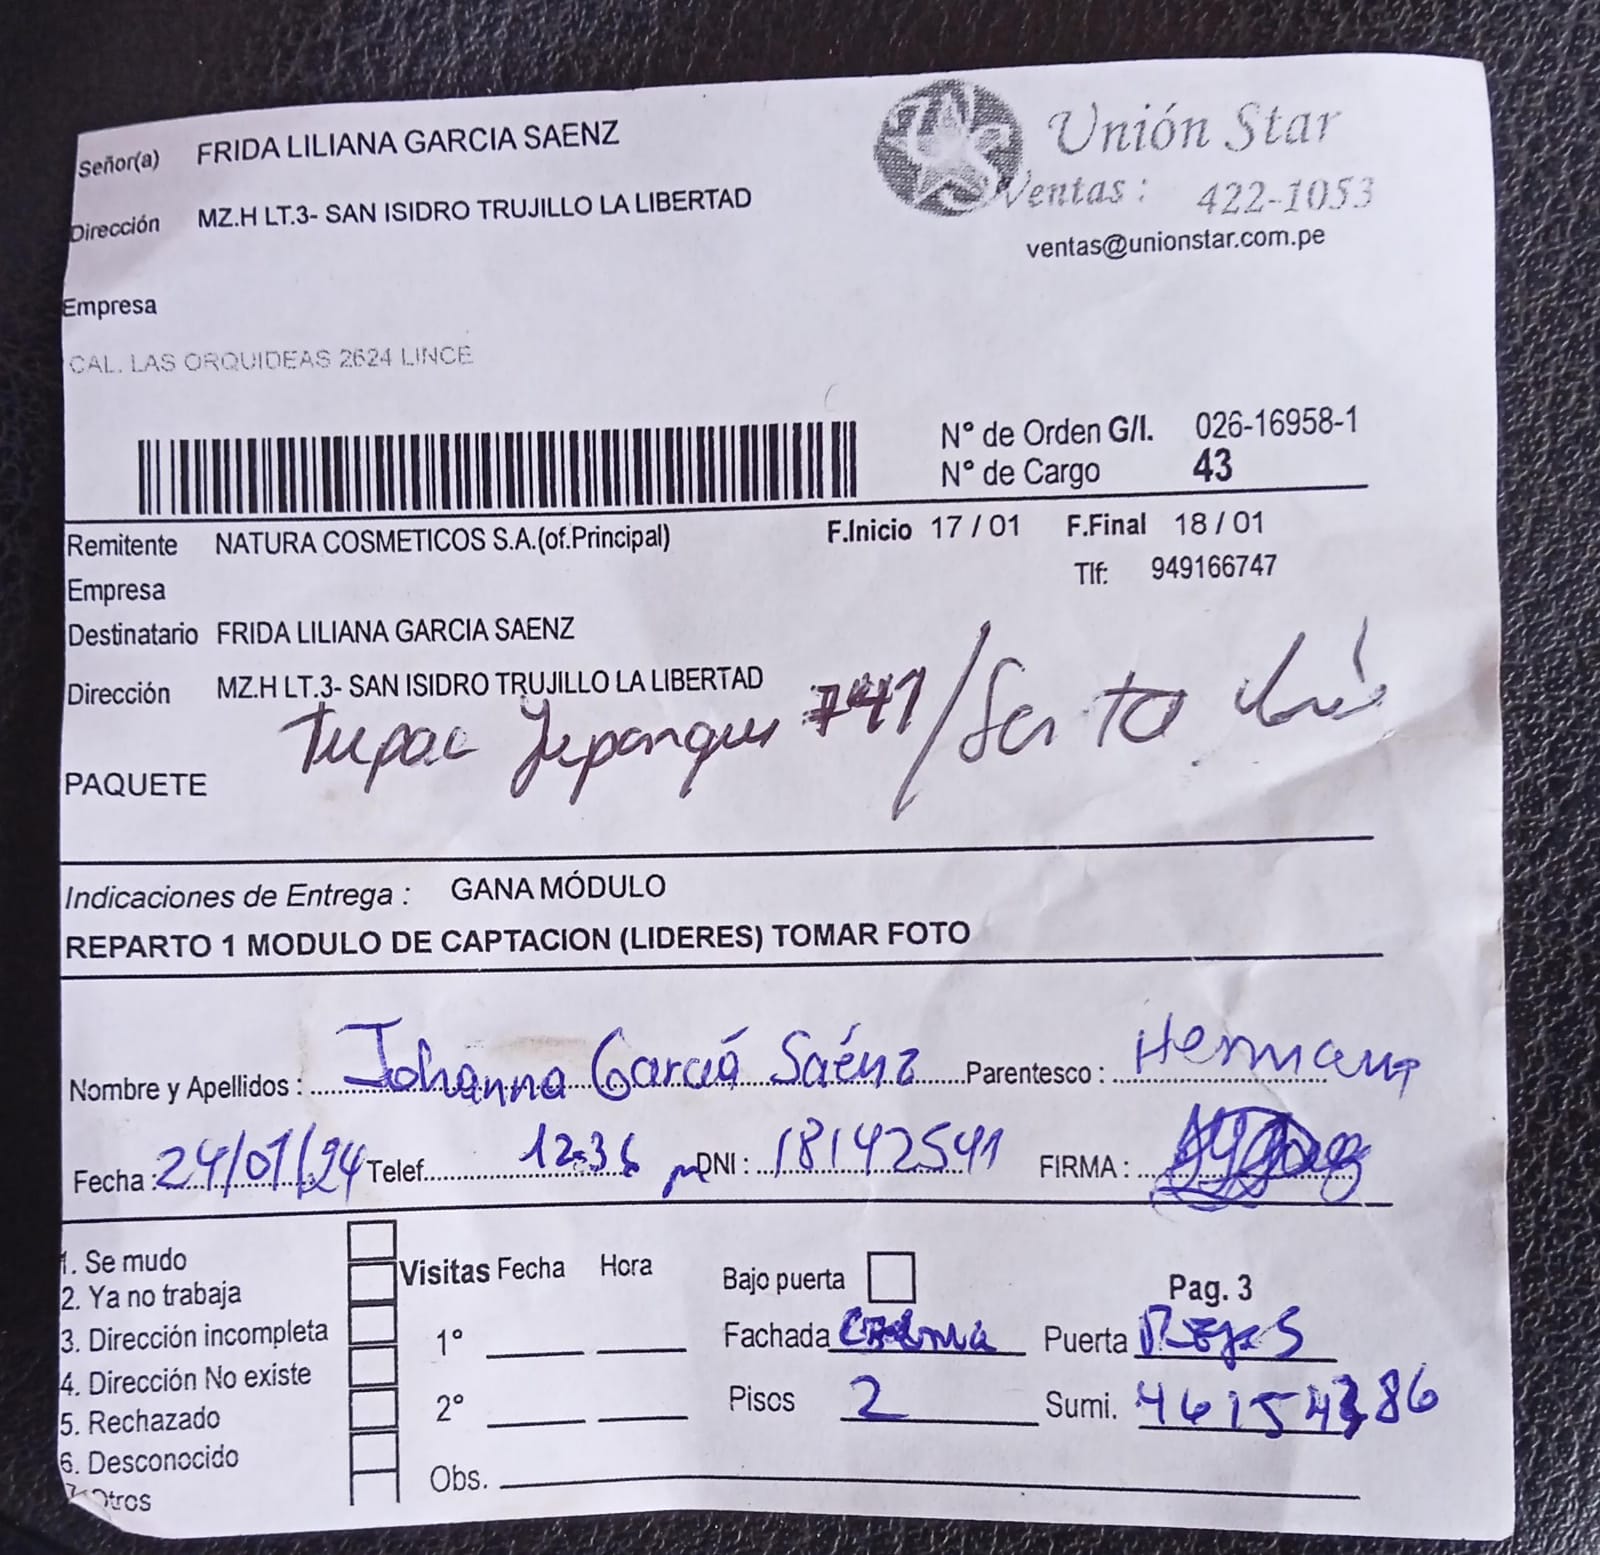 Señor(a) FRIDA LILIANA GARCIA SAENZ
Unión Star
Dirección MZ.H LT.3- SAN ISIDRO TRUJILLO LA LIBERTAD
Ventas: 422-1053
ventas@unionstar.com.pe
Empresa
CAL. LAS ORQUIDEAS 2624 LINCE
N° de Orden G/I. 026-16958-1
N° de Cargo 43
Remitente NATURA COSMETICOS S.A.(of.Principal) F.Inicio 17 / 01 F.Final 18 / 01
Empresa Tlf: 949166747
Destinatario FRIDA LILIANA GARCIA SAENZ
Dirección MZ.H LT.3- SAN ISIDRO TRUJILLO LA LIBERTAD
Tupac Yupanqui 741/Santa
PAQUETE
Indicaciones de Entrega : GANA MÓDULO
REPARTO 1 MODULO DE CAPTACION (LIDERES) TOMAR FOTO
Nombre y Apellidos : Johanna García Saénz Parentesco : Hermana
Fecha : 24/01/24 Telef. 12:36 pm DNI : 18142541 FIRMA :
1. Se mudo
2. Ya no trabaja
3. Dirección incompleta
4. Dirección No existe
5. Rechazado
6. Desconocido
7. Otros
Visitas Fecha Hora
1°
2°
Obs.
Bajo puerta Pag. 3
Fachada Crema Puerta Rejas
Pisos 2 Sumi.